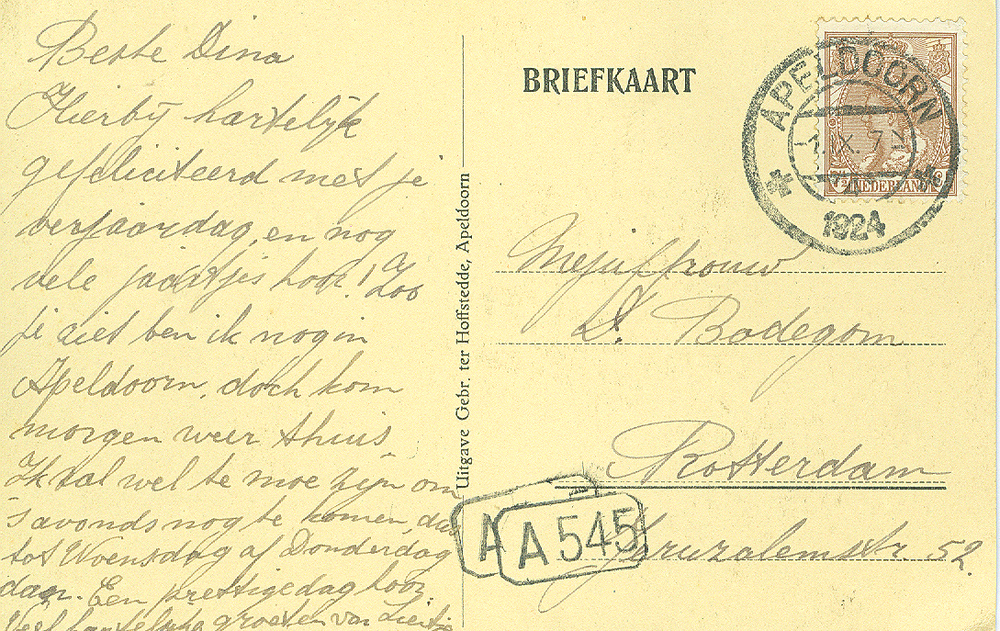 Beste Dina
Hierbij hartelijk
gefeliciteerd met je
verjaardag, en nog
vele jaartjes hoor! Zoo
je ziet ben ik nog in
Apeldoorn, doch kom
morgen weer thuis
Ik zal wel te moe zijn om
's avonds nog te komen, dus
tot Woensdag of Donderdag
dan. Een prettige dag hoor.
Veel hartelijke groeten van
Uitgave Gebr. ter Hoffstedde, Apeldoorn
BRIEFKAART
APELDOORN
1924
7½ NEDERLAND
Mejuffrouw
D. Bodegom
Rotterdam
Jeruzalemstr 52.
A
A 545